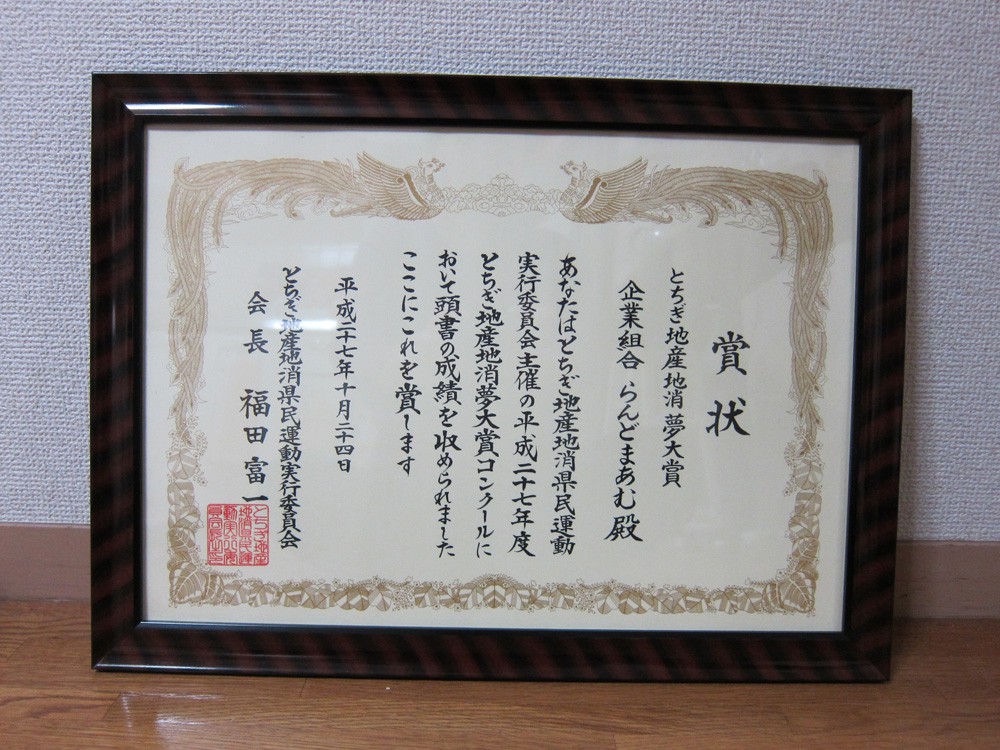 賞状
とちぎ地産地消夢大賞
企業組合 らんどまあむ殿
あなたはとちぎ地産地消県民運動
実行委員会主催の平成二十七年度
とちぎ地産地消夢大賞コンクールに
おいて頭書の成績を収められました
ここにこれを賞します
平成二十七年十月二十四日
とちぎ地産地消県民運動実行委員会
会長 福田富一